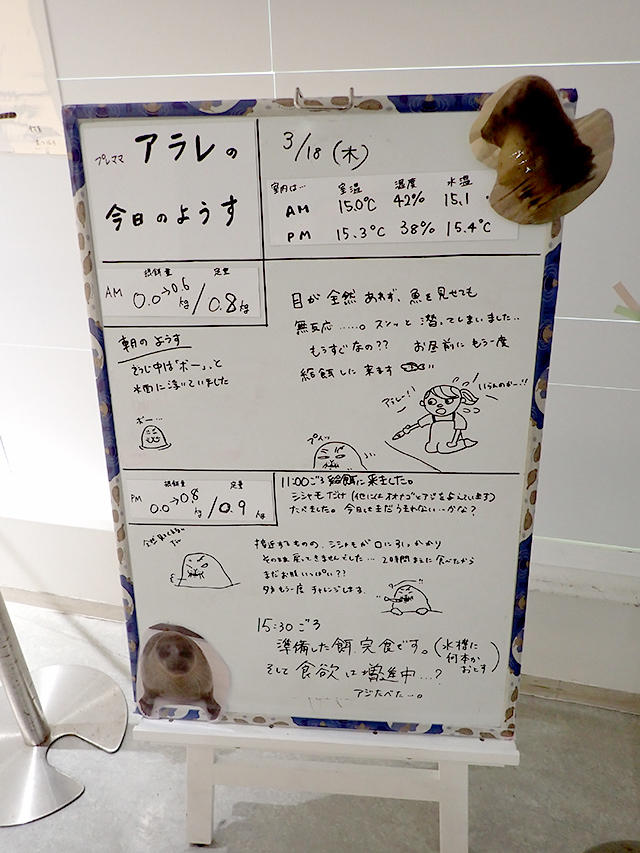 プレママ アラレの
今日のようす
3/18 (木)
室内は… 室温 湿度 水温
AM 15.0℃ 42% 15.1
PM 15.3℃ 38% 15.4℃
給餌量 定量
AM 0.0→0.6kg / 0.8kg
目が全然あわず、魚を見せても
無反応……。スンッと潜ってしまいました…
もうすぐなの?? お昼前にもう一度
給餌しに来ます
朝のようす
そうじ中は「ボー」、と
水面に浮いていました
ボー…
アラレー!!
いらんのかー!!
プイッ
給餌量 定量
PM 0.0→0.8kg / 0.9kg
11:00ごろ給餌に来ました。
シシャモだけ
たべました。今日もまだうまれない…かな?
接近するものの、シシャモが口に引っかかり
そのまま戻ってきませんでした… 2時間まえに食べたから
まだお腹いっぱい??
夕方もう一度チャレンジします。
15:30ごろ
準備した餌、完食です。(水槽に何本かおとす)
そして食欲は増進中…?
アジたべた…。